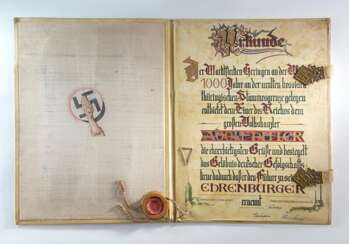 Urkunde
Der Marktflecken Herzogen an der
1000 Jahre an der uralten
Thüringischen Stammesgrenze gelegen
entbietet dem Einer des Reiches dem
großen Volkskanzler
ADOLF HITLER
die ehrerbietigsten Grüße und besiegelt
das Gelöbnis deutscher Gefolgschafts
treue dadurch daß er den Führer zu seinem
EHRENBÜRGER
ernennt